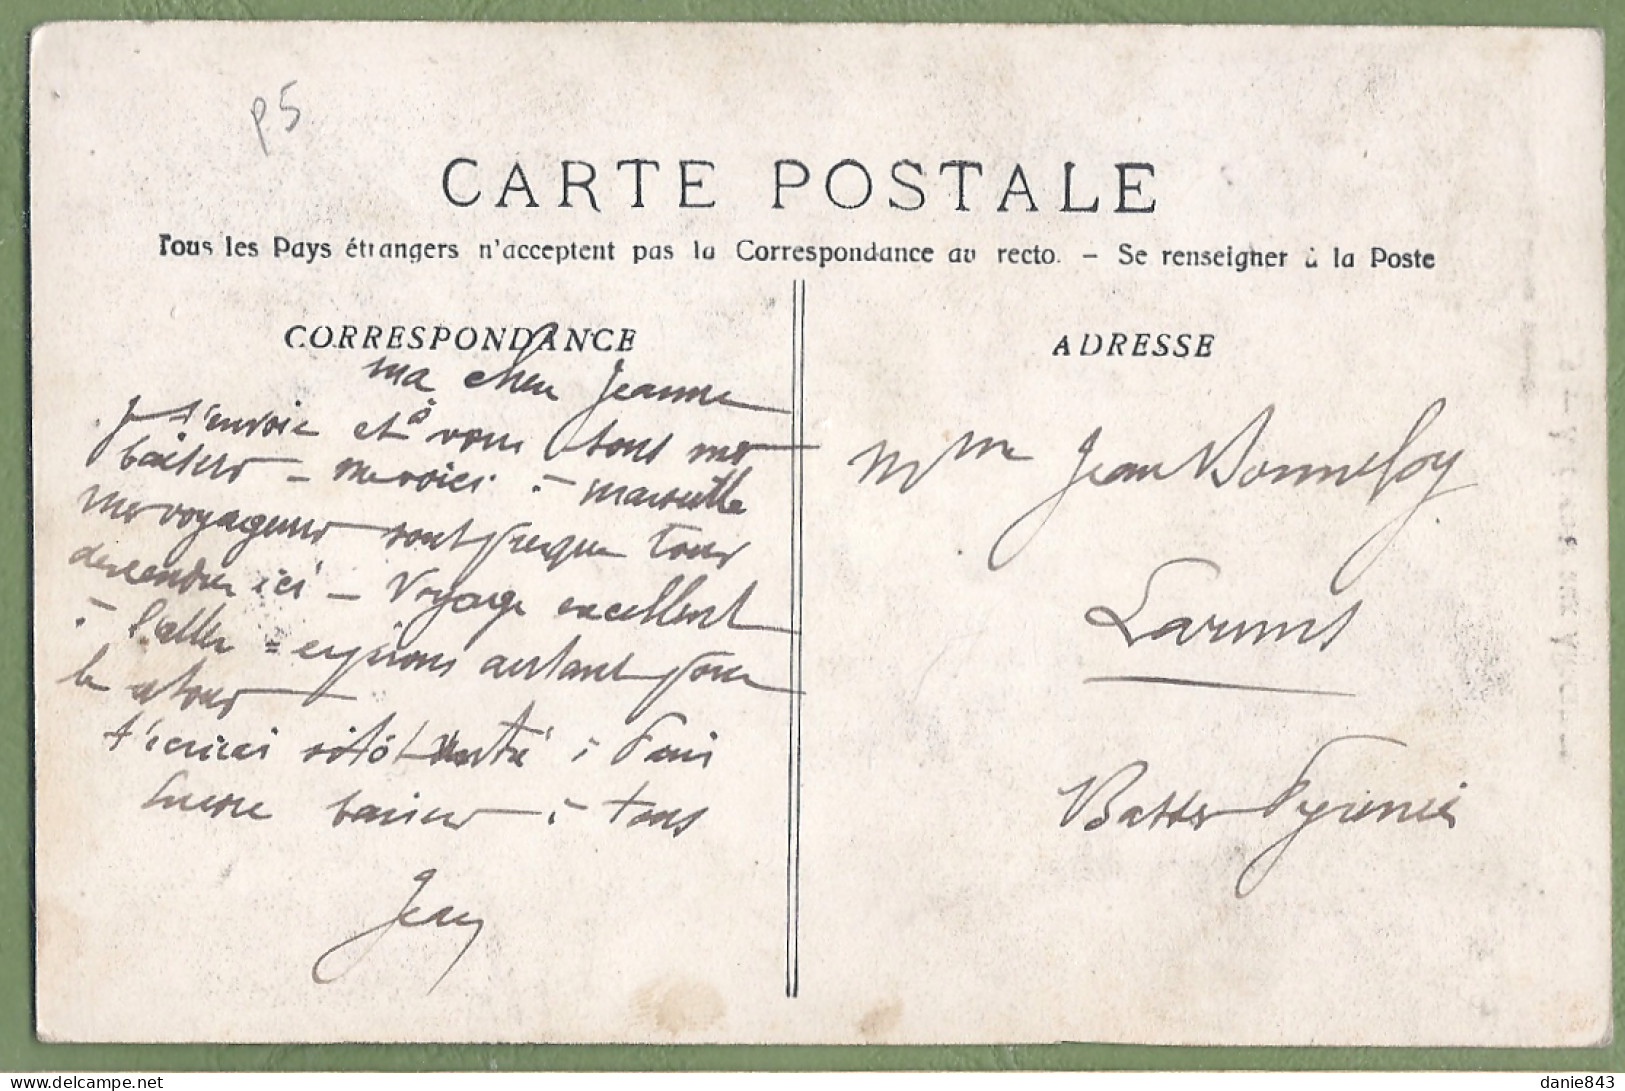 p5
CARTE POSTALE
Tous les Pays étrangers n'acceptent pas la Correspondance au recto. – Se renseigner à la Poste
CORRESPONDANCE
ma chère Jeanne
Je t'envoie et à vous tous mes
baisers – me voici à Marseille
mes voyageurs sont presque tous
descendus ici – Voyage excellent
à l'aller = espérons autant pour
le retour
t'écrirai sitôt à Paris
Encore baisers à tous
Jean
ADRESSE
Mme Jean Bonnefoy
Laruns
Basses Pyrénées
danie843